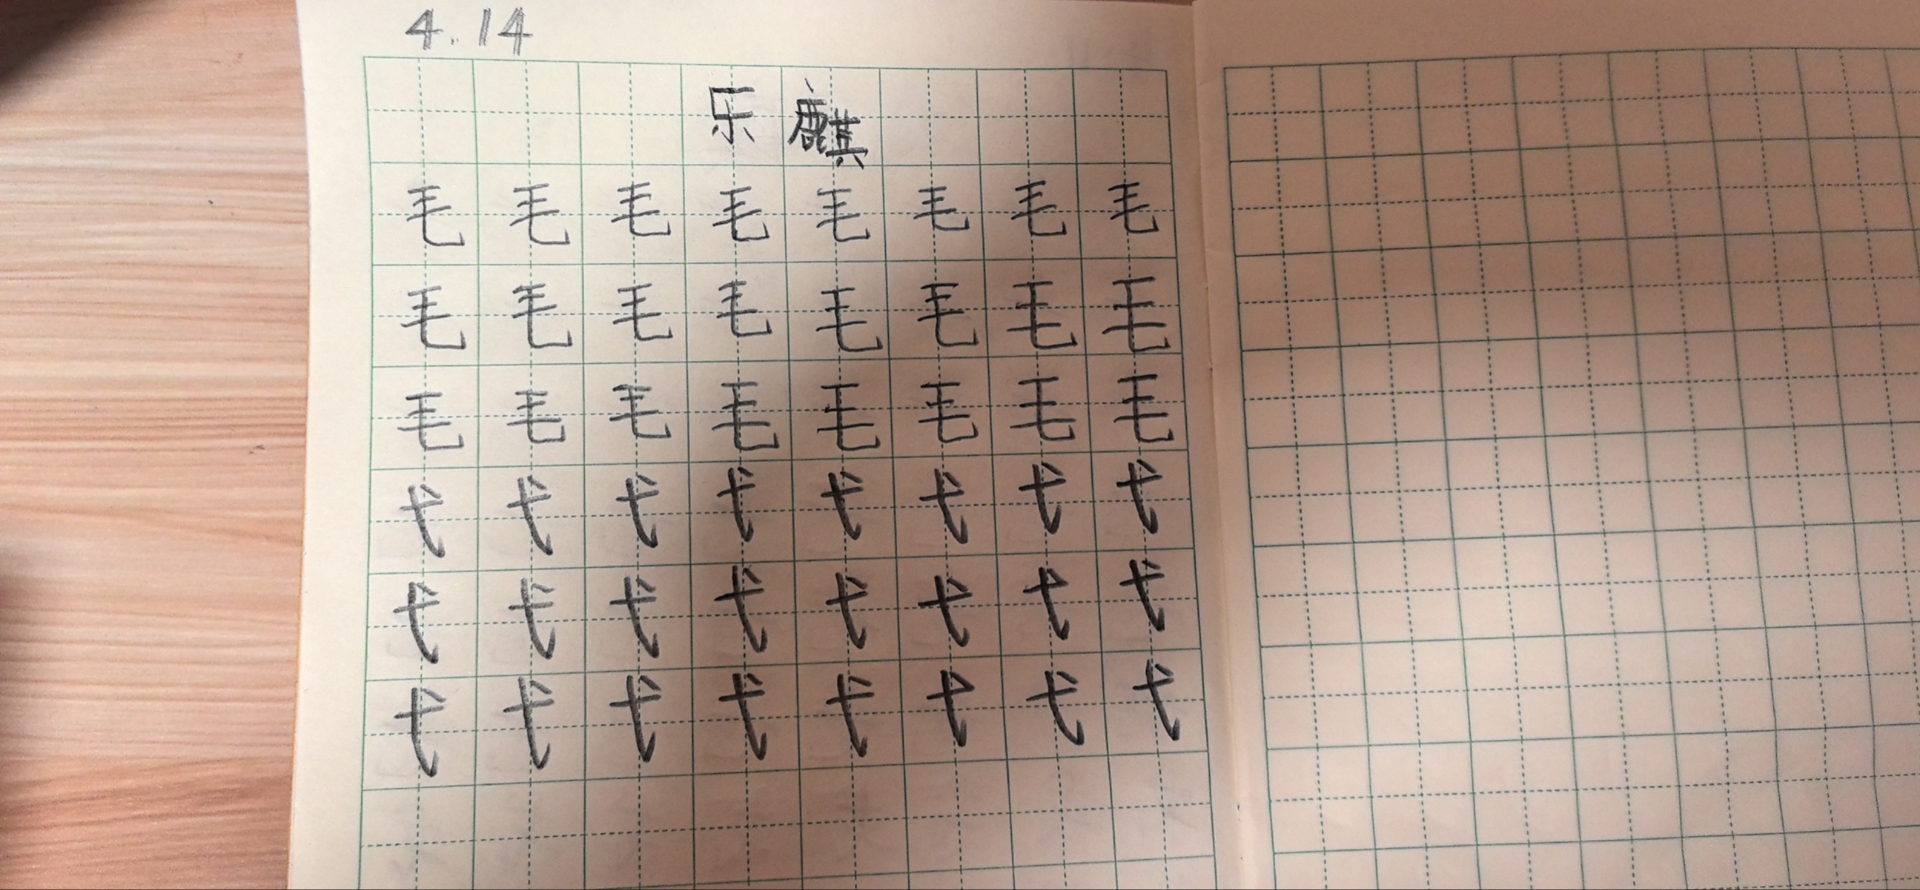 4.14
乐麒
毛毛毛毛毛毛毛毛
毛毛毛毛毛毛毛毛
毛毛毛毛毛毛毛毛
弋弋弋弋弋弋弋弋
弋弋弋弋弋弋弋弋
弋弋弋弋弋弋弋弋